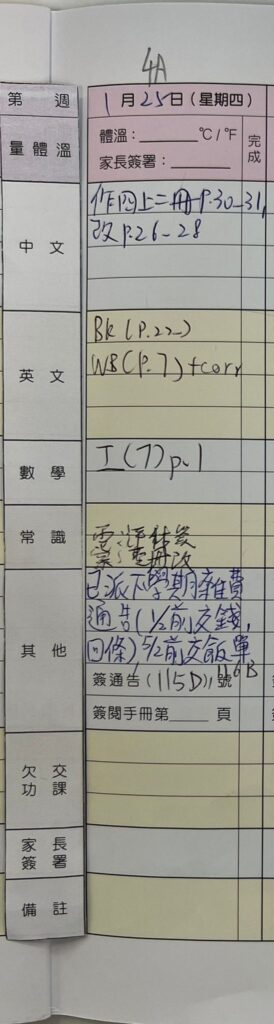 4A
第 週
1月25日(星期四)
量體溫
體溫:______°C/°F
家長簽署:______
完成
中文
作四上二冊P.30-31,
改P.26-28
英文
BK(P.22-)
WB(P.7)+corr
數學
工(7)p.1
常識
冊改
其他
已派下學期雜費
通告(1/2前交錢,
回條)5/2前交飯單
簽通告(115D)116B號
簽閱手冊第____頁
欠交功課
家長簽署
備註